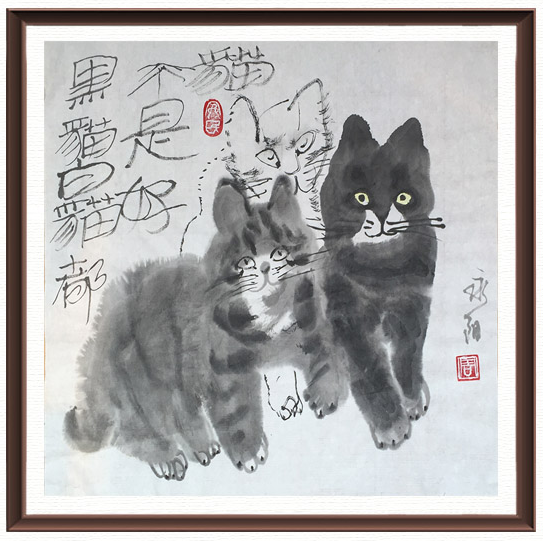 黑貓白貓都
不是好
貓
永阳
周